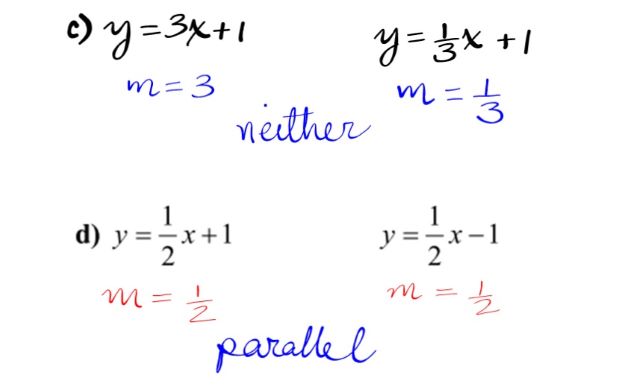 c) y=3x+1 y=1/3x+1
m=3 m=1/3
neither
d) y=1/2x+1 y=1/2x-1
m=1/2 m=1/2
parallel